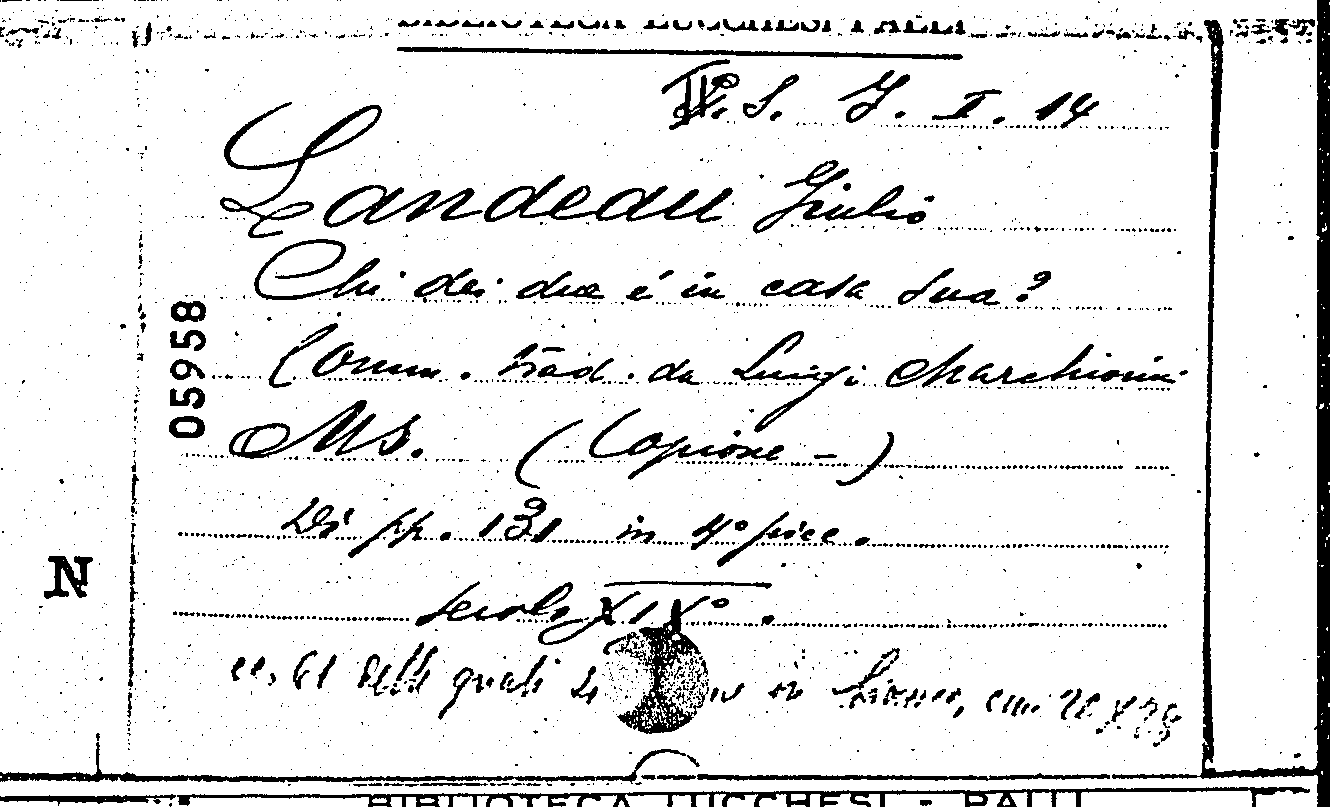 BIBLIOTECA LUCCHESI PALLI
S. J. I. 14
Landeau Giulio
Chi dei due é in casa sua?
Comm. trad. da Luigi Marchionni
Ms. (Copione -)
Di pp. 131 in 4° picc.
secolo XIX°.
cc. 61 delle quali in bianco, cm. 20 x 28
05958
N
BIBLIOTECA LUCCHESI - PALLI